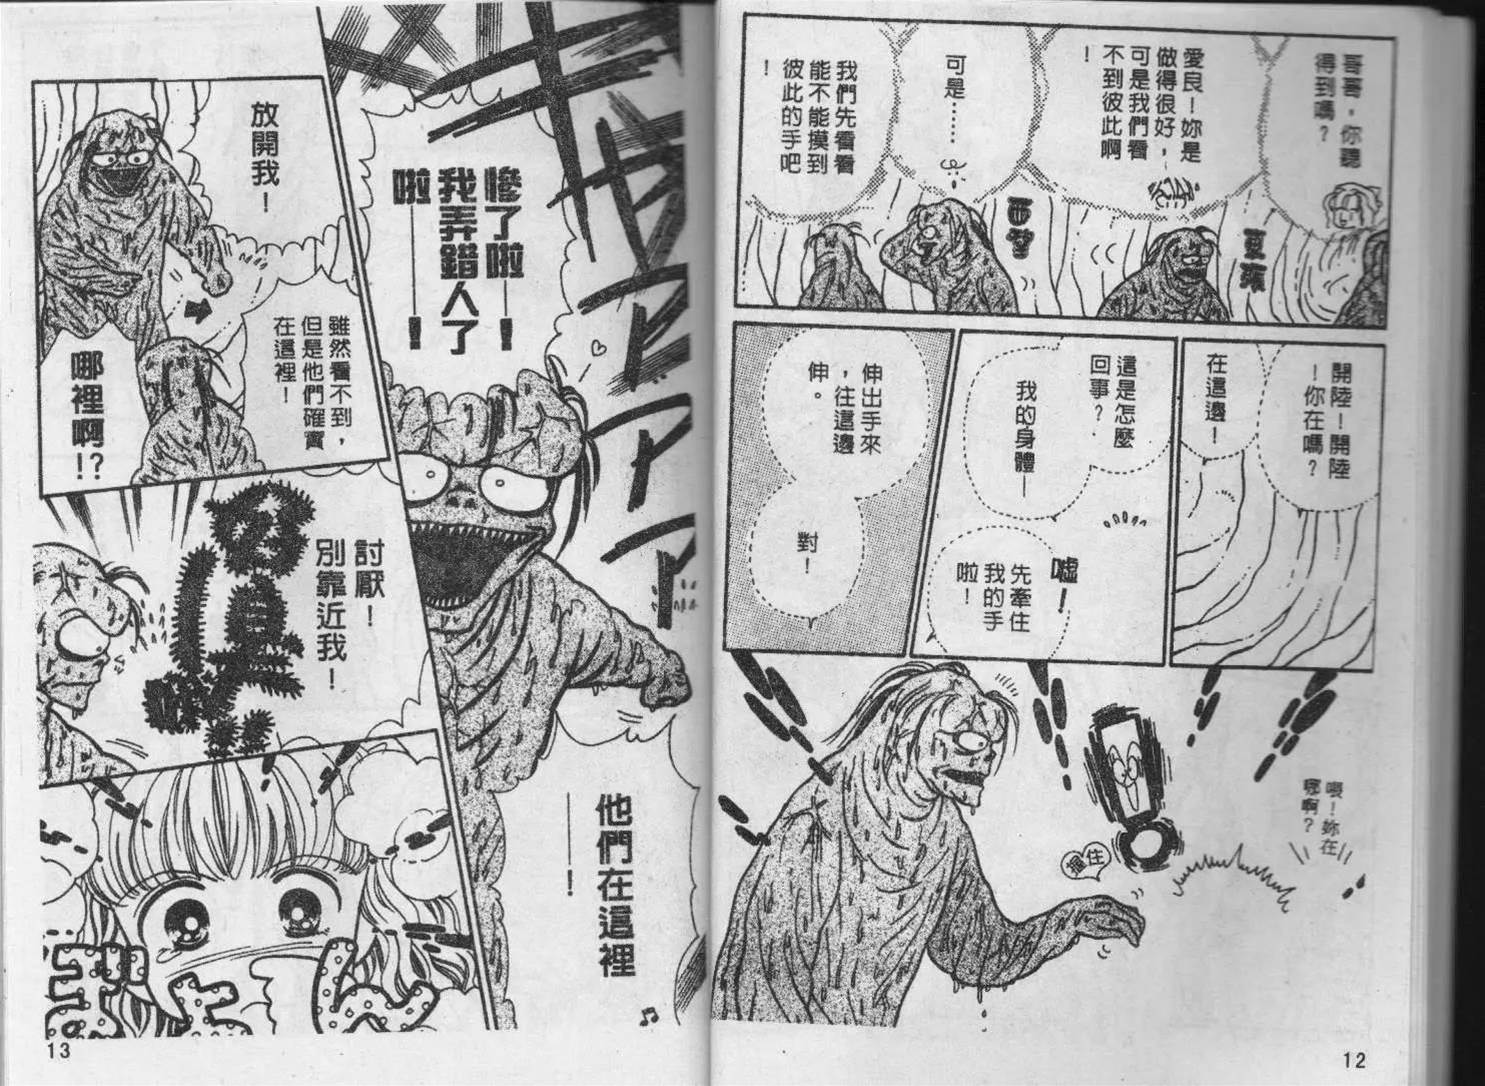 哥哥，你聽
得到嗎？
愛良！妳是
做得很好，
可是我們看
不到彼此啊
！
可是……
我們先看看
能不能摸到
彼此的手吧
！
東張
西望
開陸！開陸
！你在嗎？
在這邊！
這是怎麼
回事？
我的身體—
噓！
先牽住
我的手
啦！
伸出手來
，往這邊
伸。
對！
喂！妳在
哪啊？
住
12
慘了啦——！
我弄錯人了
啦——！
他們在這裡
——！
放開我！
雖然看不到，
但是他們確實
在這裡！
哪裡啊!?
討厭！
別靠近我！
13